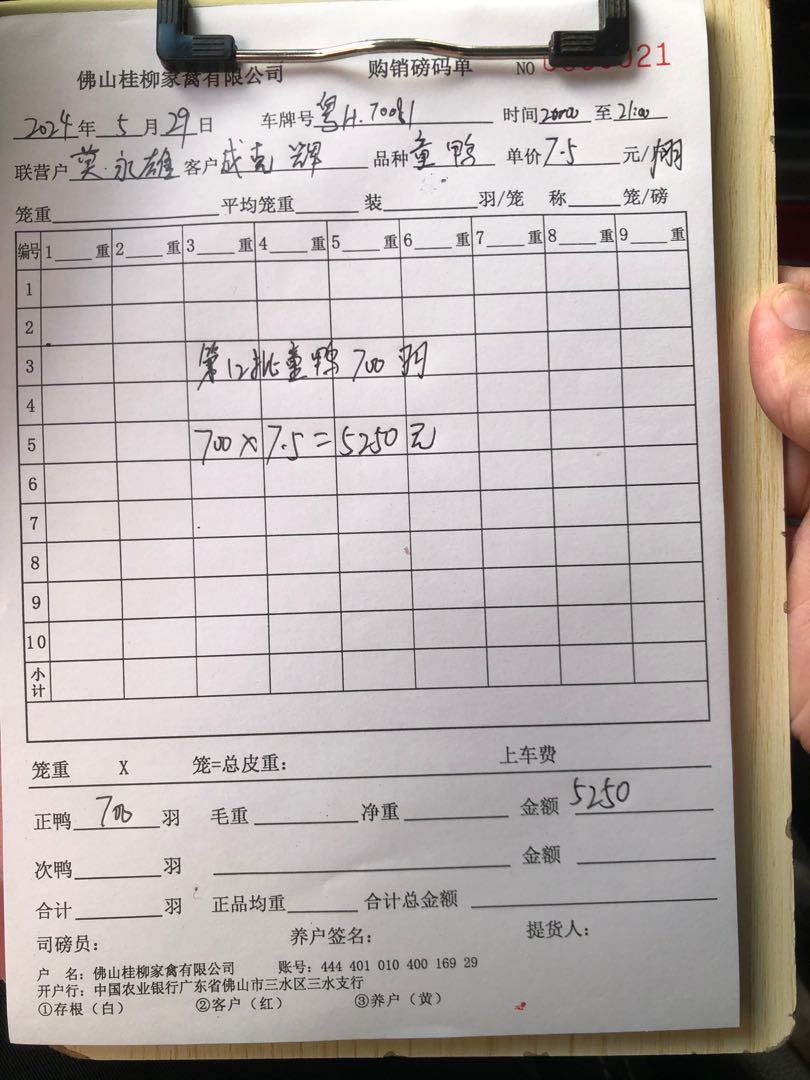 佛山桂柳家禽有限公司 购销磅码单 NO 21
2024年5月29日 车牌号粤H. 时间 至21:00
联营户莫永雄 客户成克辉 品种童鸭 单价7.5元/羽
笼重 平均笼重 装 羽/笼 称 笼/磅
编号 1 重 2 重 3 重 4 重 5 重 6 重 7 重 8 重 9 重
1
2
3 第12批童鸭 700 羽
4
5 700×7.5=5250元
6
7
8
9
10
小计
笼重 X 笼=总皮重: 上车费
正鸭 700 羽 毛重 净重 金额 5250
次鸭 羽 金额
合计 羽 正品均重 合计总金额
司磅员: 养户签名: 提货人:
户 名: 佛山桂柳家禽有限公司 账号: 444 401 010 400 169 29
开户行: 中国农业银行广东省佛山市三水区三水支行
①存根(白) ②客户(红) ③养户(黄)